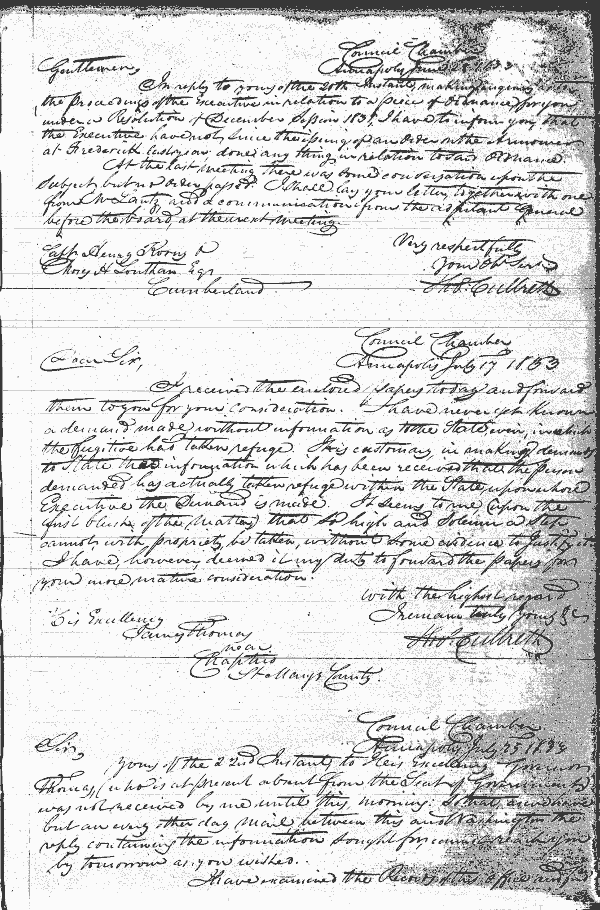 Council Chamber
Gentlemen, Annapolis June 25 1833
In reply to yours of the 20th Instant, making enquiry as to
the proceedings of the Executive in relation to a piece of Ordnance for you
under a Resolution of December Session 1831, I have to inform you, that
the Executive have not, since the issuing of an Order on the Armourer
at Frederick last year done any thing in relation to said Ordnance.
At the last meeting there was some conversation upon the
subject, but no order passed. I shall lay your letter, together with one
from Mr Lantz and a communication from the Adjutant General
before the board, at the next meeting.
Very respectfully
Capt. Henry Koons &
Your Obt Servt
Esqr
Cumberland
Thos. Culbreth
Council Chamber
Dear Sir, Annapolis July 17 1833
I received the enclosed papers today and forward
them to you for your consideration. I have never yet known
a demand made without information as to the State even, in which
the fugitive had taken refuge. It is customary in making demands
to State that information which has been received that the person
demanded has actually taken refuge within the State, upon whose
Executive the Demand is made. It seems to me (upon the
first blush of the matter) that so high and solemn a Step,
cannot, with propriety, be taken, without some evidence to justify it
I have, however, deemed it my duty to forward the papers for
your more mature consideration.
With the highest regard
His Excellency I remain truly yours &c
James Thomas
near Thos. Culbreth
Chaptico
St Mary's County.
Council Chamber
Sir, Annapolis, July 25 1833
Yours of the 22nd Instant, to His Excellency Governor
Thomas, (who is at present absent from the Seat of Government)
was not received by me until this morning: So that, as we have
but an every other day mail between this and Washington the
reply containing the information sought for cannot reach you
by tomorrow as you wished.
I have examined the Records of this Office and